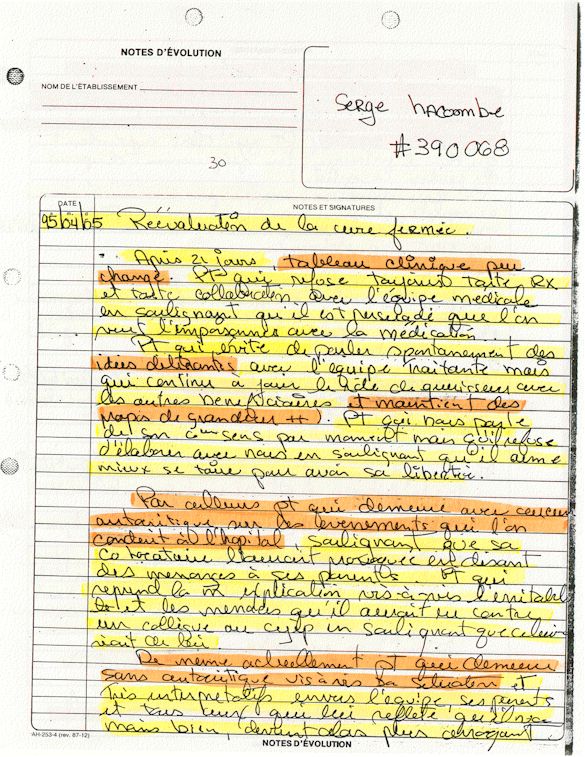 NOTES D'ÉVOLUTION
NOM DE L'ÉTABLISSEMENT
Serge Lacombe
#390068
30
DATE
NOTES ET SIGNATURES
95/04/05 Réévaluation de la cure fermée.
Après 21 jours, tableau clinique peu
changé. Pt qui refuse toujours toute RX
et toute collaboration avec l'équipe médicale
en soulignant qu'il est persuadé que l'on
veut l'empoisonner avec la médication.
Pt qui évite de parler spontanément des
idées délirantes avec l'équipe traitante mais
qui continue à jouer le rôle de guérisseur avec
les autres bénéficiaires et maintient des
propos de grandeur ++). Pt qui nous parle
de son sens par moment mais qu'il refuse
d'élaborer avec nous en soulignant qu'il aime
mieux se taire pour avoir sa liberté.
Par ailleurs pt qui demeure avec aucune
autocritique sur les événements qui l'on
conduit à l'hôpital, soulignant que sa
colocataire l'aurait provoqué en disant
des menaces à ses parents... Pt qui
reprend la m explication vis-à-vis l'irritabilité
et les menaces qu'il aurait eu contre
un collègue au cégep en soulignant que celui-ci
riait de lui.
De même actuellement pt qui demeure
sans autocritique vis à vis sa situation et
très interprétatif envers l'équipe, ses parents
et tous ceux qui lui reflète qu'il
moins bien, devient plus arrogant
AH-253-4 (rev. 87-12)
NOTES D'ÉVOLUTION